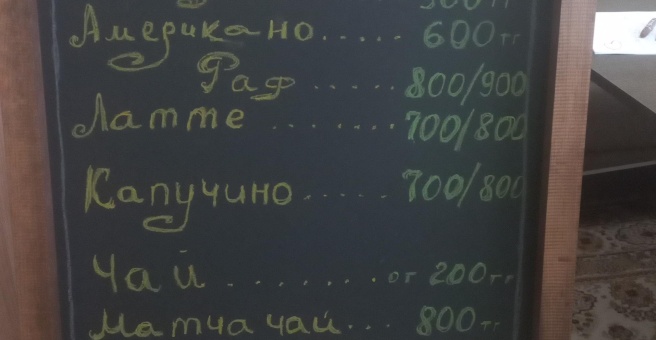 Американо..... 600тг
Раф ..... 800/900
Латте ........ 700/800
Капучино ...... 700/800
Чай ........ от 200тг
Матча чай... 800тг